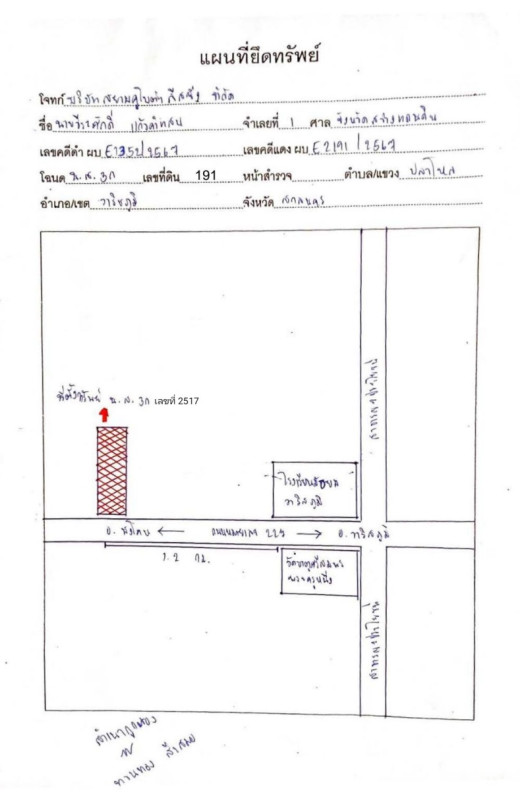 แผนที่ยึดทรัพย์
โจทก์ บริษัท สยามคูโบต้า ลีสซิ่ง จำกัด
ชื่อ นายวีระศักดิ์ แก้วคำแสน จำเลยที่ 1 ศาล จังหวัดสว่างแดนดิน
เลขคดีดำ ผบ E1352/2567 เลขคดีแดง ผบ E2191/2567
โฉนด น.ส. 3ก เลขที่ดิน 191 หน้าสำรวจ ตำบล/แขวง ปลาโหล
อำเภอ/เขต วาริชภูมิ จังหวัด สกลนคร
ที่ตั้งทรัพย์ น.ส. 3ก เลขที่ 2517
สาธารณประโยชน์
โรงเรียนมัธยม
วาริชภูมิ
อ. พังโคน ← ถนนหมายเลข → อ. วาริชภูมิ
1.2 กม.
สาธารณประโยชน์
สำเนาถูกต้อง